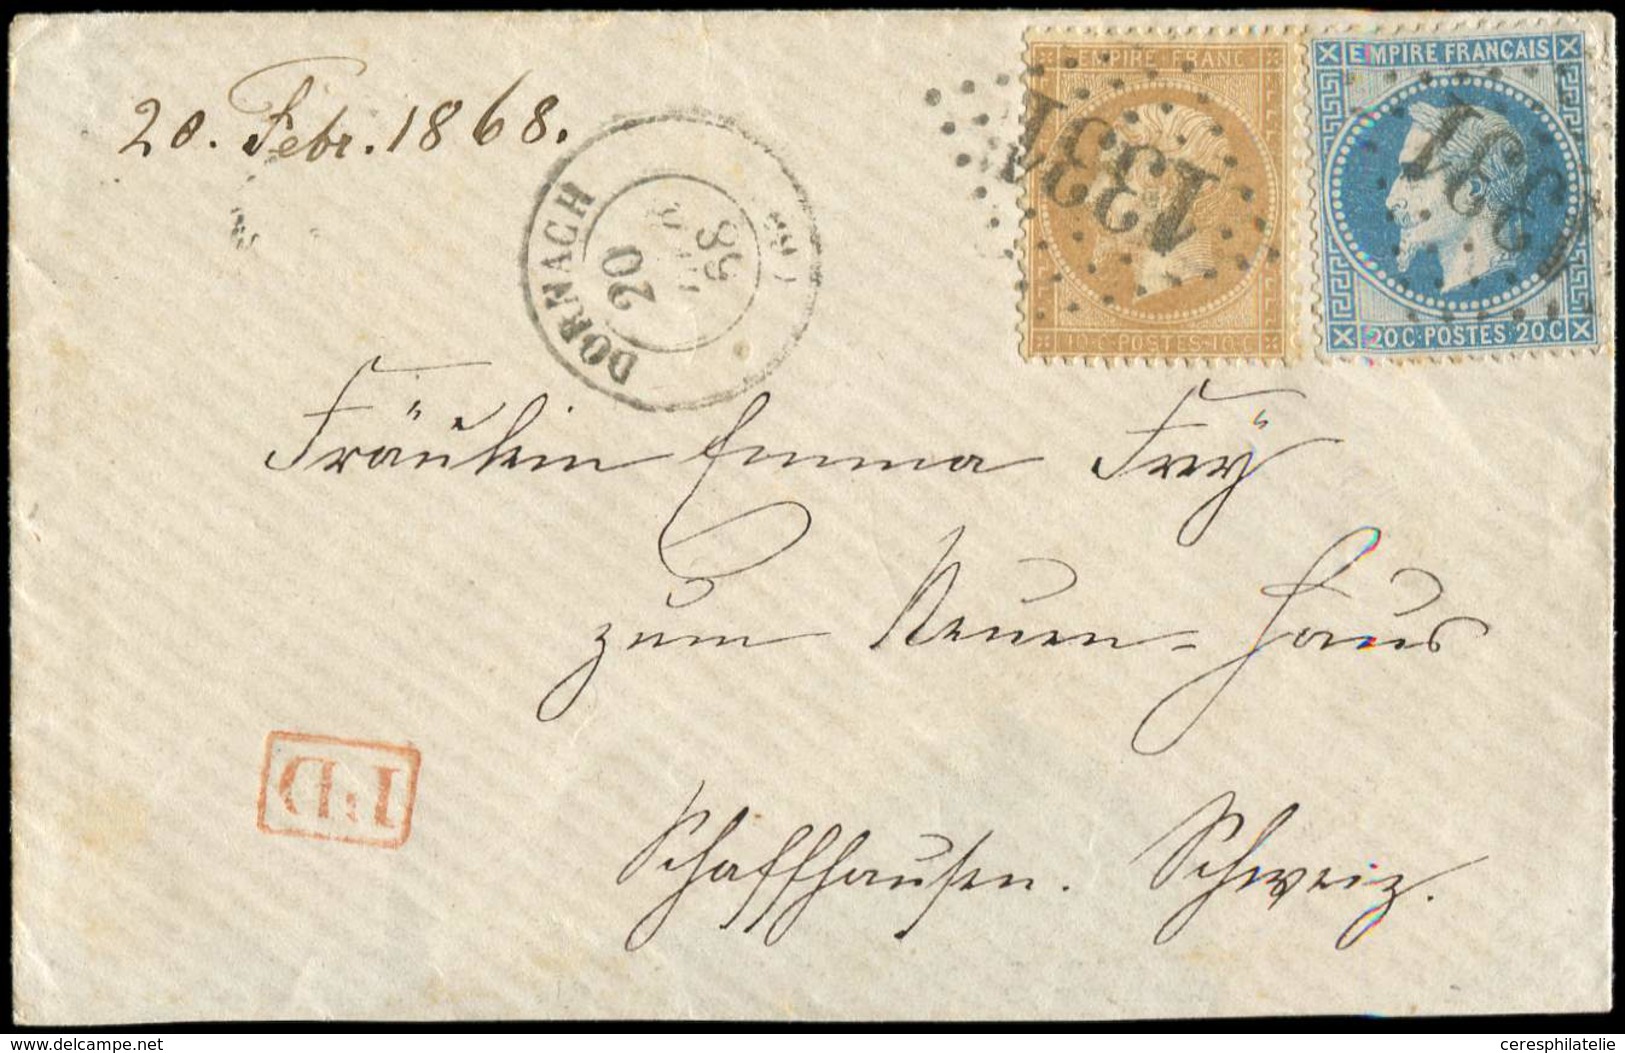 20. Febr. 1868.
DORNACH
20
68
(66)
EMPIRE FRANC
10 C·POSTES·10 C
1331
EMPIRE FRANÇAIS
20 C·POSTES·20 C
1331
Fräulein Emma Frÿ
zum Neuen-Haus
Schaffhausen. Schweiz.
PD
delcampe.net
ceresphilatelie